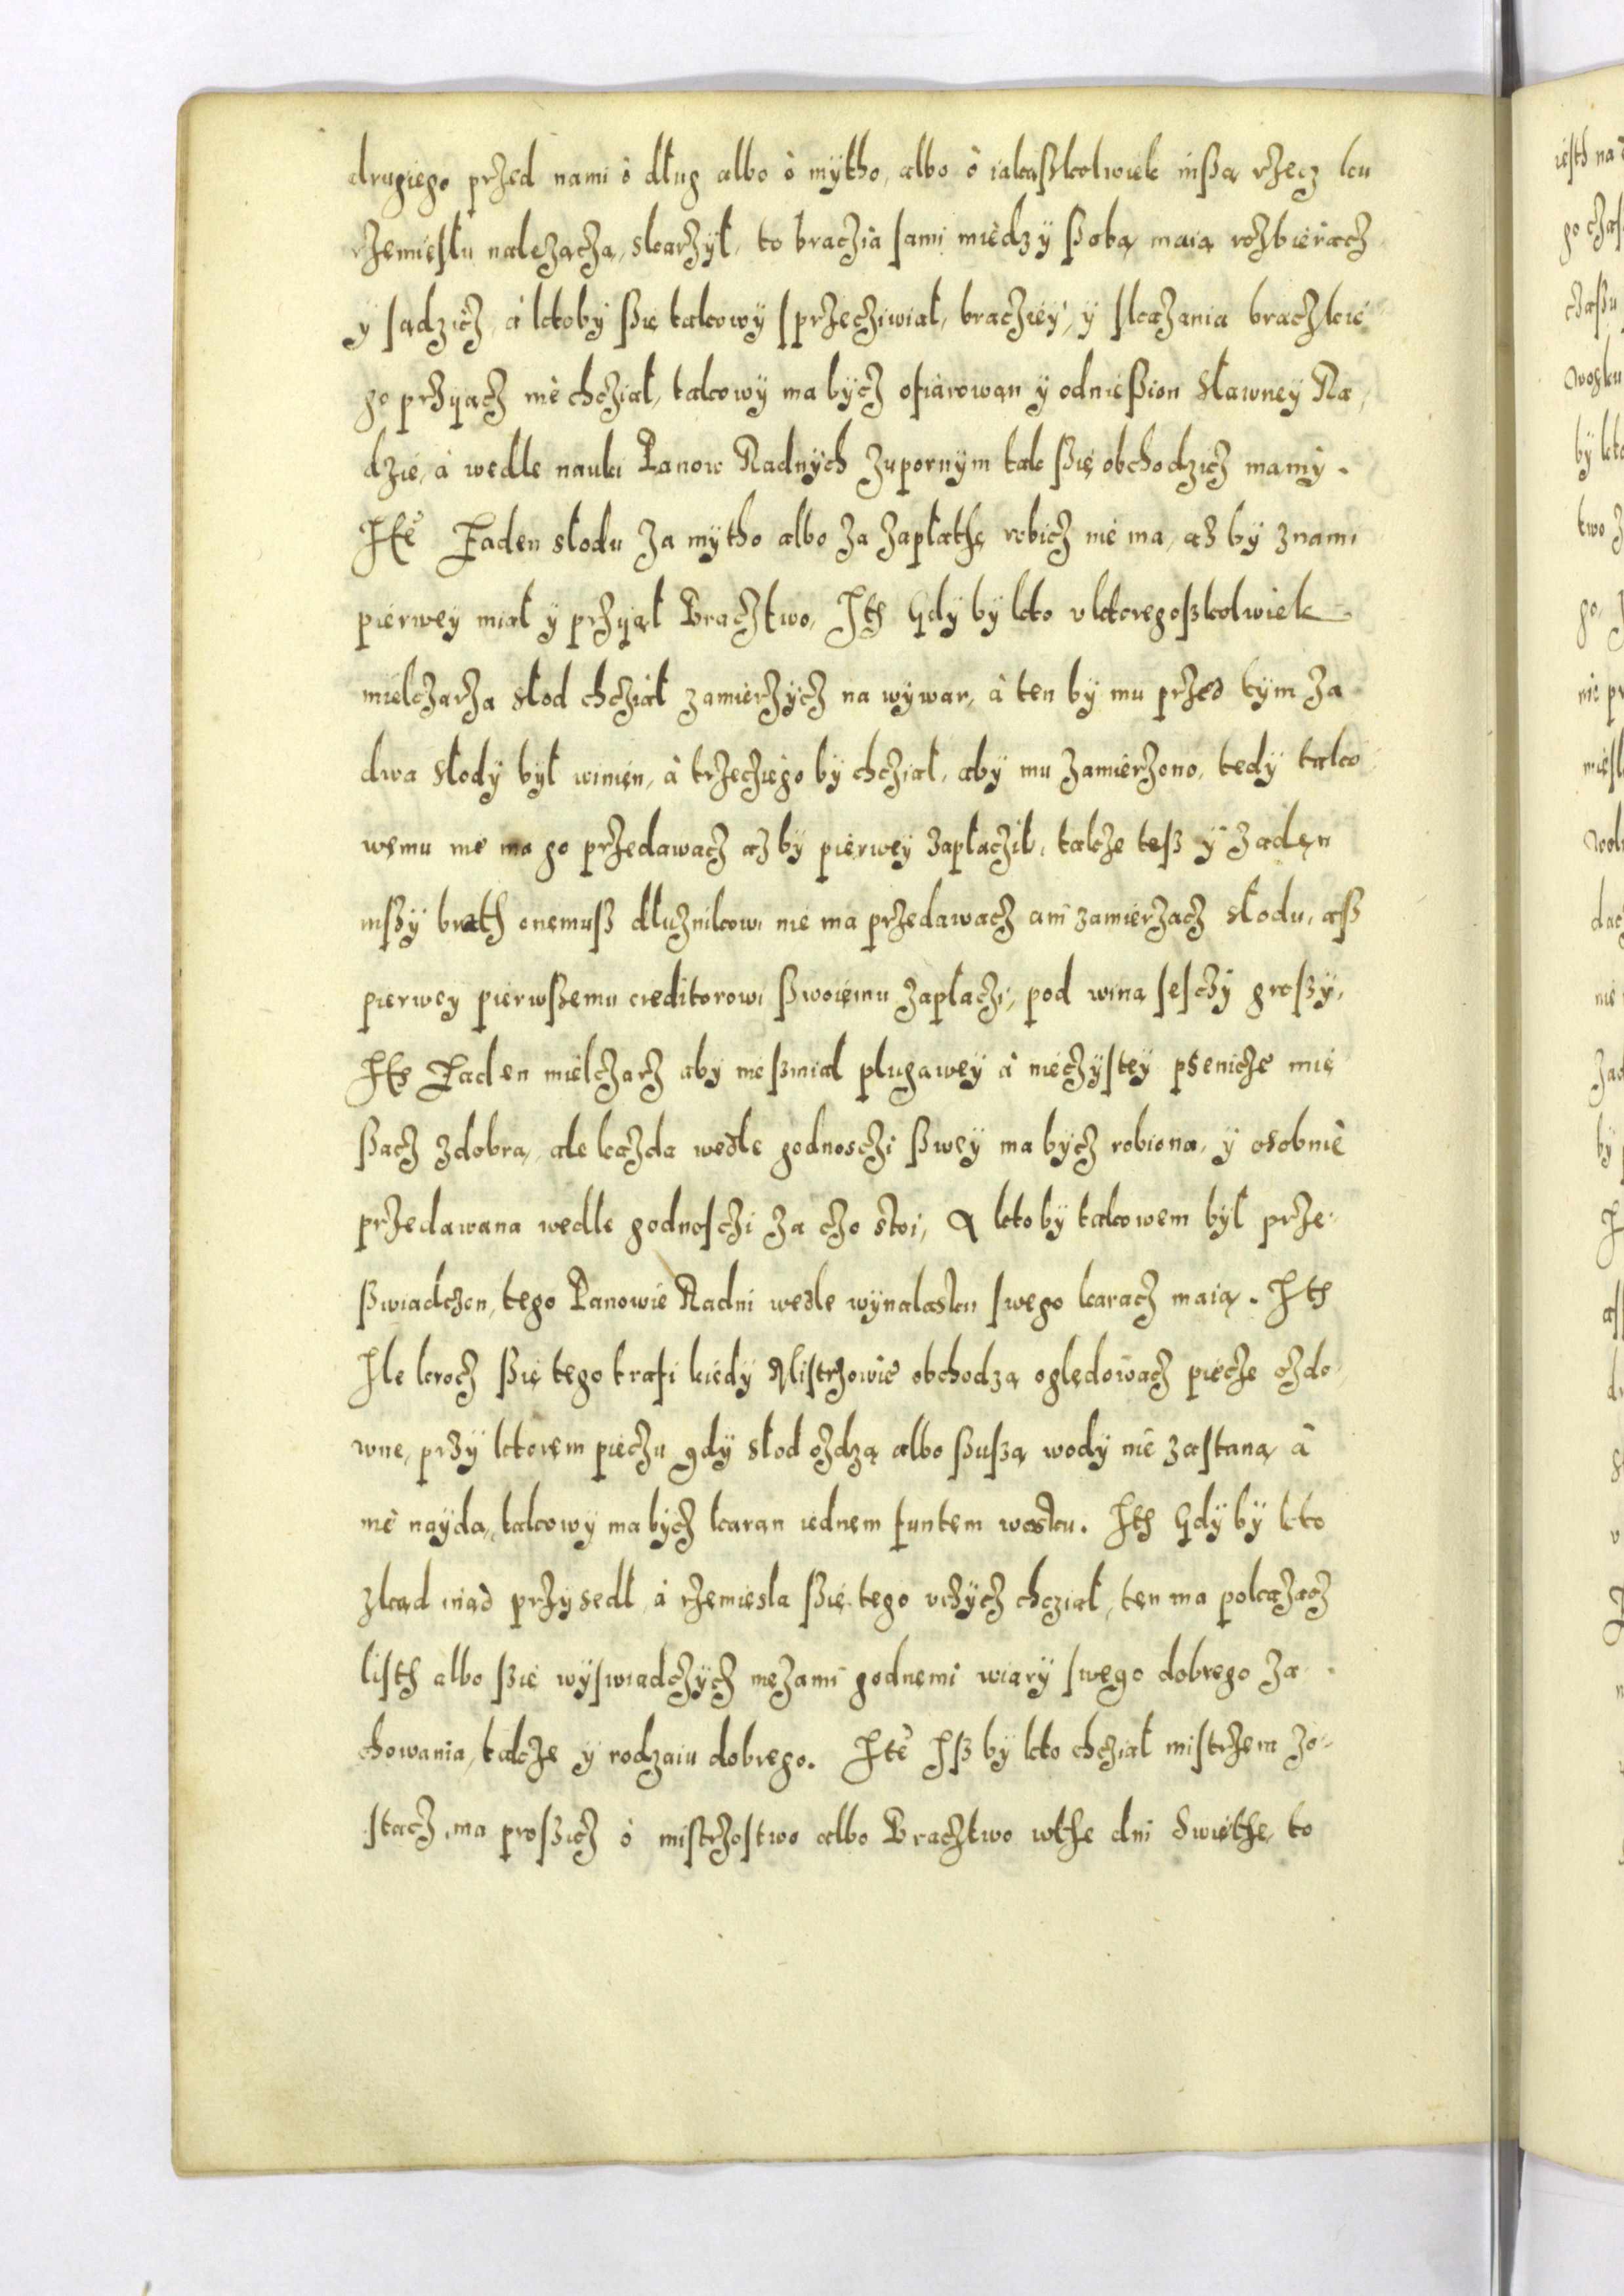 drugiego przed nami ò dług albo ò mÿtho, albo ò iakaßkolwiek inßą rzecz ku
rzemiesłu należącza, skarżył, to braczia sami miedzy ßobą maią rozbieracz
y sądzicz, à ktoby ßię takowy sprzecziwiał, bracziey, y skazania braczkie
go przyjącz nie chcział, takowÿ ma bÿcz ofiarowan y odnießion Sławney Ra,
dzie, à wedle nauki Panow Radnÿch zupornÿm tak ßię obchodzicz mamÿ.
Itē Żaden słodu za mÿtho albo za zapłathę robicz nie ma, aż bÿ znami
pierwey miał y przyjął Bracztwo, Ith Gdÿ bÿ kto v ktoregoßkolwiek
mielczarza słod chcział zamierzÿcz na wÿwar, à ten bÿ mu przed tÿm za
dwa słodÿ bÿł winien, à trzecziego bÿ chcział, abÿ mu zamierzono, tedÿ tako
wemu nie ma go przedawacz aż bÿ pierwey zapłacził, także teß ÿ żaden
inßÿ brath onemuß dłużnikowi nie ma przedawacz ani zamierzacz słodu, aß
pierwey pierwßemu creditorowi ßwoiemu zapłaczi, pod winą sesczÿ großÿ,
Ith Żaden mielczarz abÿ nie ßmiał plugawey à nieczÿstey pszenicze mie
ßacz zdobrą, ale każda wedle godnosczi ßwey ma bÿcz robiona, ÿ osobnie
przedawana wedle godnosczi za czo stoi, A kto bÿ takowem bÿł prze
ßwiadczon, tego Panowie Radni wedle wÿnalasku swego karacz maią. Ith
Ile krocz ßię tego trafi kiedÿ Mistrzowie obchodzą oględowacz piecze ozdo
wne, przÿ ktorem pieczu gdÿ słod ozdzą albo ßußą wodÿ nie zastaną à
nie naydą, takowÿ ma bÿcz karan iednem funtem wosku. Ith Gdÿ bÿ kto
zkąd inąd przÿsedł à rzemiesla ßię tego vczÿcz chcział, ten ma pokazacz
listh albo ßię wÿswiadczÿcz mężami godnemi wiarÿ swego dobrego za
chowania, także ÿ rodzaiu dobrego. Itē Iß bÿ kto chcział mistrzem zo
stacz, ma proßicz ò mistrzostwo albo Bracztwo wthe dni Swięthe, to